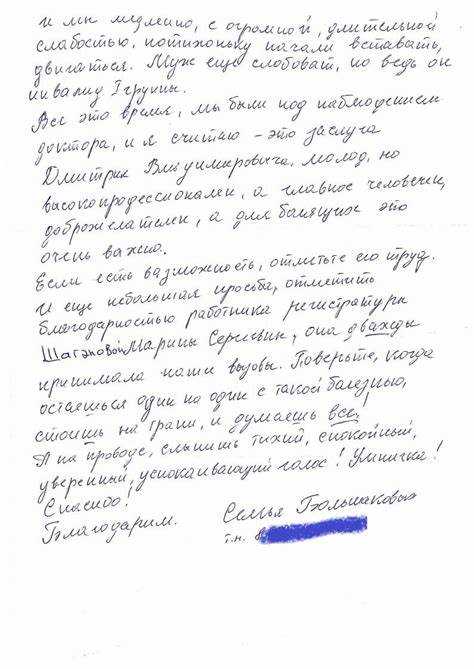 и мы медленно, с огромной, длительной
слабостью, потихоньку начали вставать,
двигаться. Муж ещё слабоват, но ведь он
инвалид I группы.
Всё это время, мы были под наблюдением
доктора, и я считаю - это заслуга
Дмитрия Владимировича, молод, но
высокопрофессионален, а главное человечен,
доброжелателен, а для болящих это
очень важно.
Если есть возможность, отметьте его труд.
И ещё небольшая просьба, отметить
благодарностью работника регистратуры
Шагановой Марины Сергеевны, она дважды
принимала наши вызовы. Поверьте, когда
остаёшься один на один с такой болезнью,
стоишь на грани, и думаешь всё!
А на проводе, слышишь тихий, спокойный,
уверенный, успокаивающий голос! Умничка!
Спасибо!
Благодарим. Семья Большаковых
т.н.